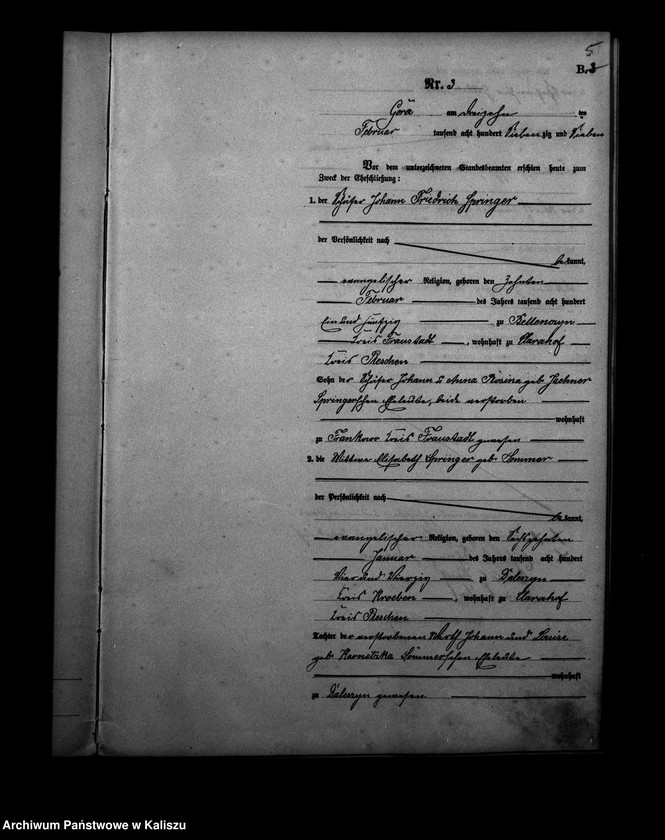 5
B.3
Nr. 3
Gora am dreizehn ten
Februar tausend acht hundert Sieben zig und Sieben
Vor dem unterzeichneten Standesbeamten erschien heute zum
Zweck der Eheschließung:
1. der Schäfer Johann Friedrich Springer
der Persönlichkeit nach
bekannt,
evangelischer Religion, geboren den Zehnten
Februar des Jahres tausend acht hundert
Ein und fünfzig zu
Kreis Fraustadt, wohnhaft zu Clarahof
Kreis Pleschen
Sohn der Schäfer Johann u Anna Rosina geb.
Springerschen Eheleute, beide verstorben
wohnhaft
zu Frankowo Kreis Fraustadt gewesen
2. die Wittwe Elisabeth Springer geb. Sommer
der Persönlichkeit nach
bekannt,
evangelischer Religion, geboren den Sechszehnten
Januar des Jahres tausend acht hundert
Vier und Vierzig zu Daleszyn
Kreis Kroeben, wohnhaft zu Clarahof
Kreis Pleschen
Tochter der verstorbenen Johann und Louise
geb. Sommerschen Eheleute
wohnhaft
zu Daleszyn gewesen.
Archiwum Państwowe w Kaliszu